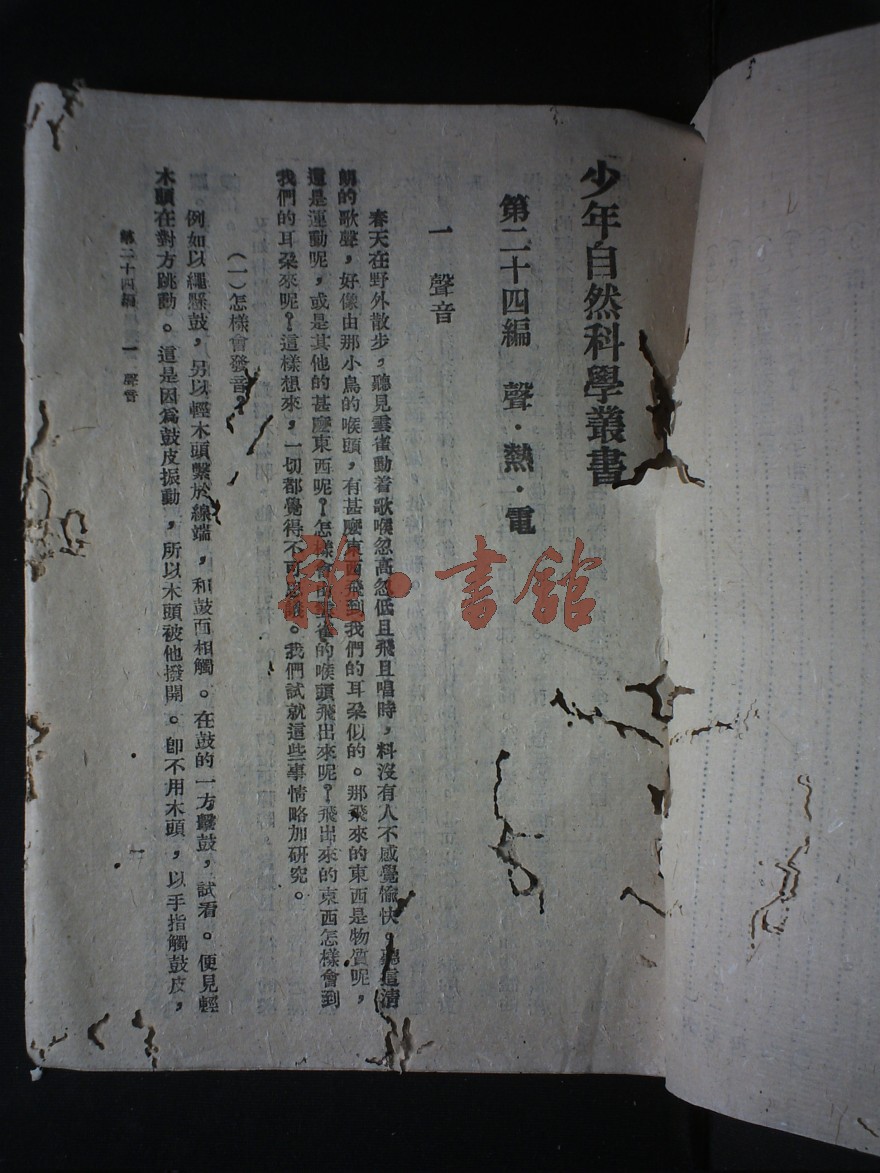 少年自然科學叢書
第二十四編　聲·熱·電
一　聲音
春天在野外散步，聽見雲雀動着歌喉忽高忽低且飛且唱時，料沒有人不感覺愉快。聽這清
朗的歌聲，好像由那小鳥的喉頭，有甚麼東西飛到我們的耳朶似的。那飛來的東西是物質呢，
還是運動呢，或是其他的甚麼東西呢？怎樣會由雲雀的喉頭飛出來呢？飛出來的東西怎樣會到
我們的耳朶來呢？這樣想來，一切都覺得不可思議。我們試就這些事情略加研究。
（一）怎樣會發音？
例如以繩懸鼓，另以輕木頭繫於線端，和鼓面相觸。在鼓的一方擊鼓，試看。便見輕
木頭在對方跳動。這是因爲鼓皮振動，所以木頭被他撥開。卽不用木頭，以手指觸鼓皮，
第二十四編　一　聲音
一
雜·書館